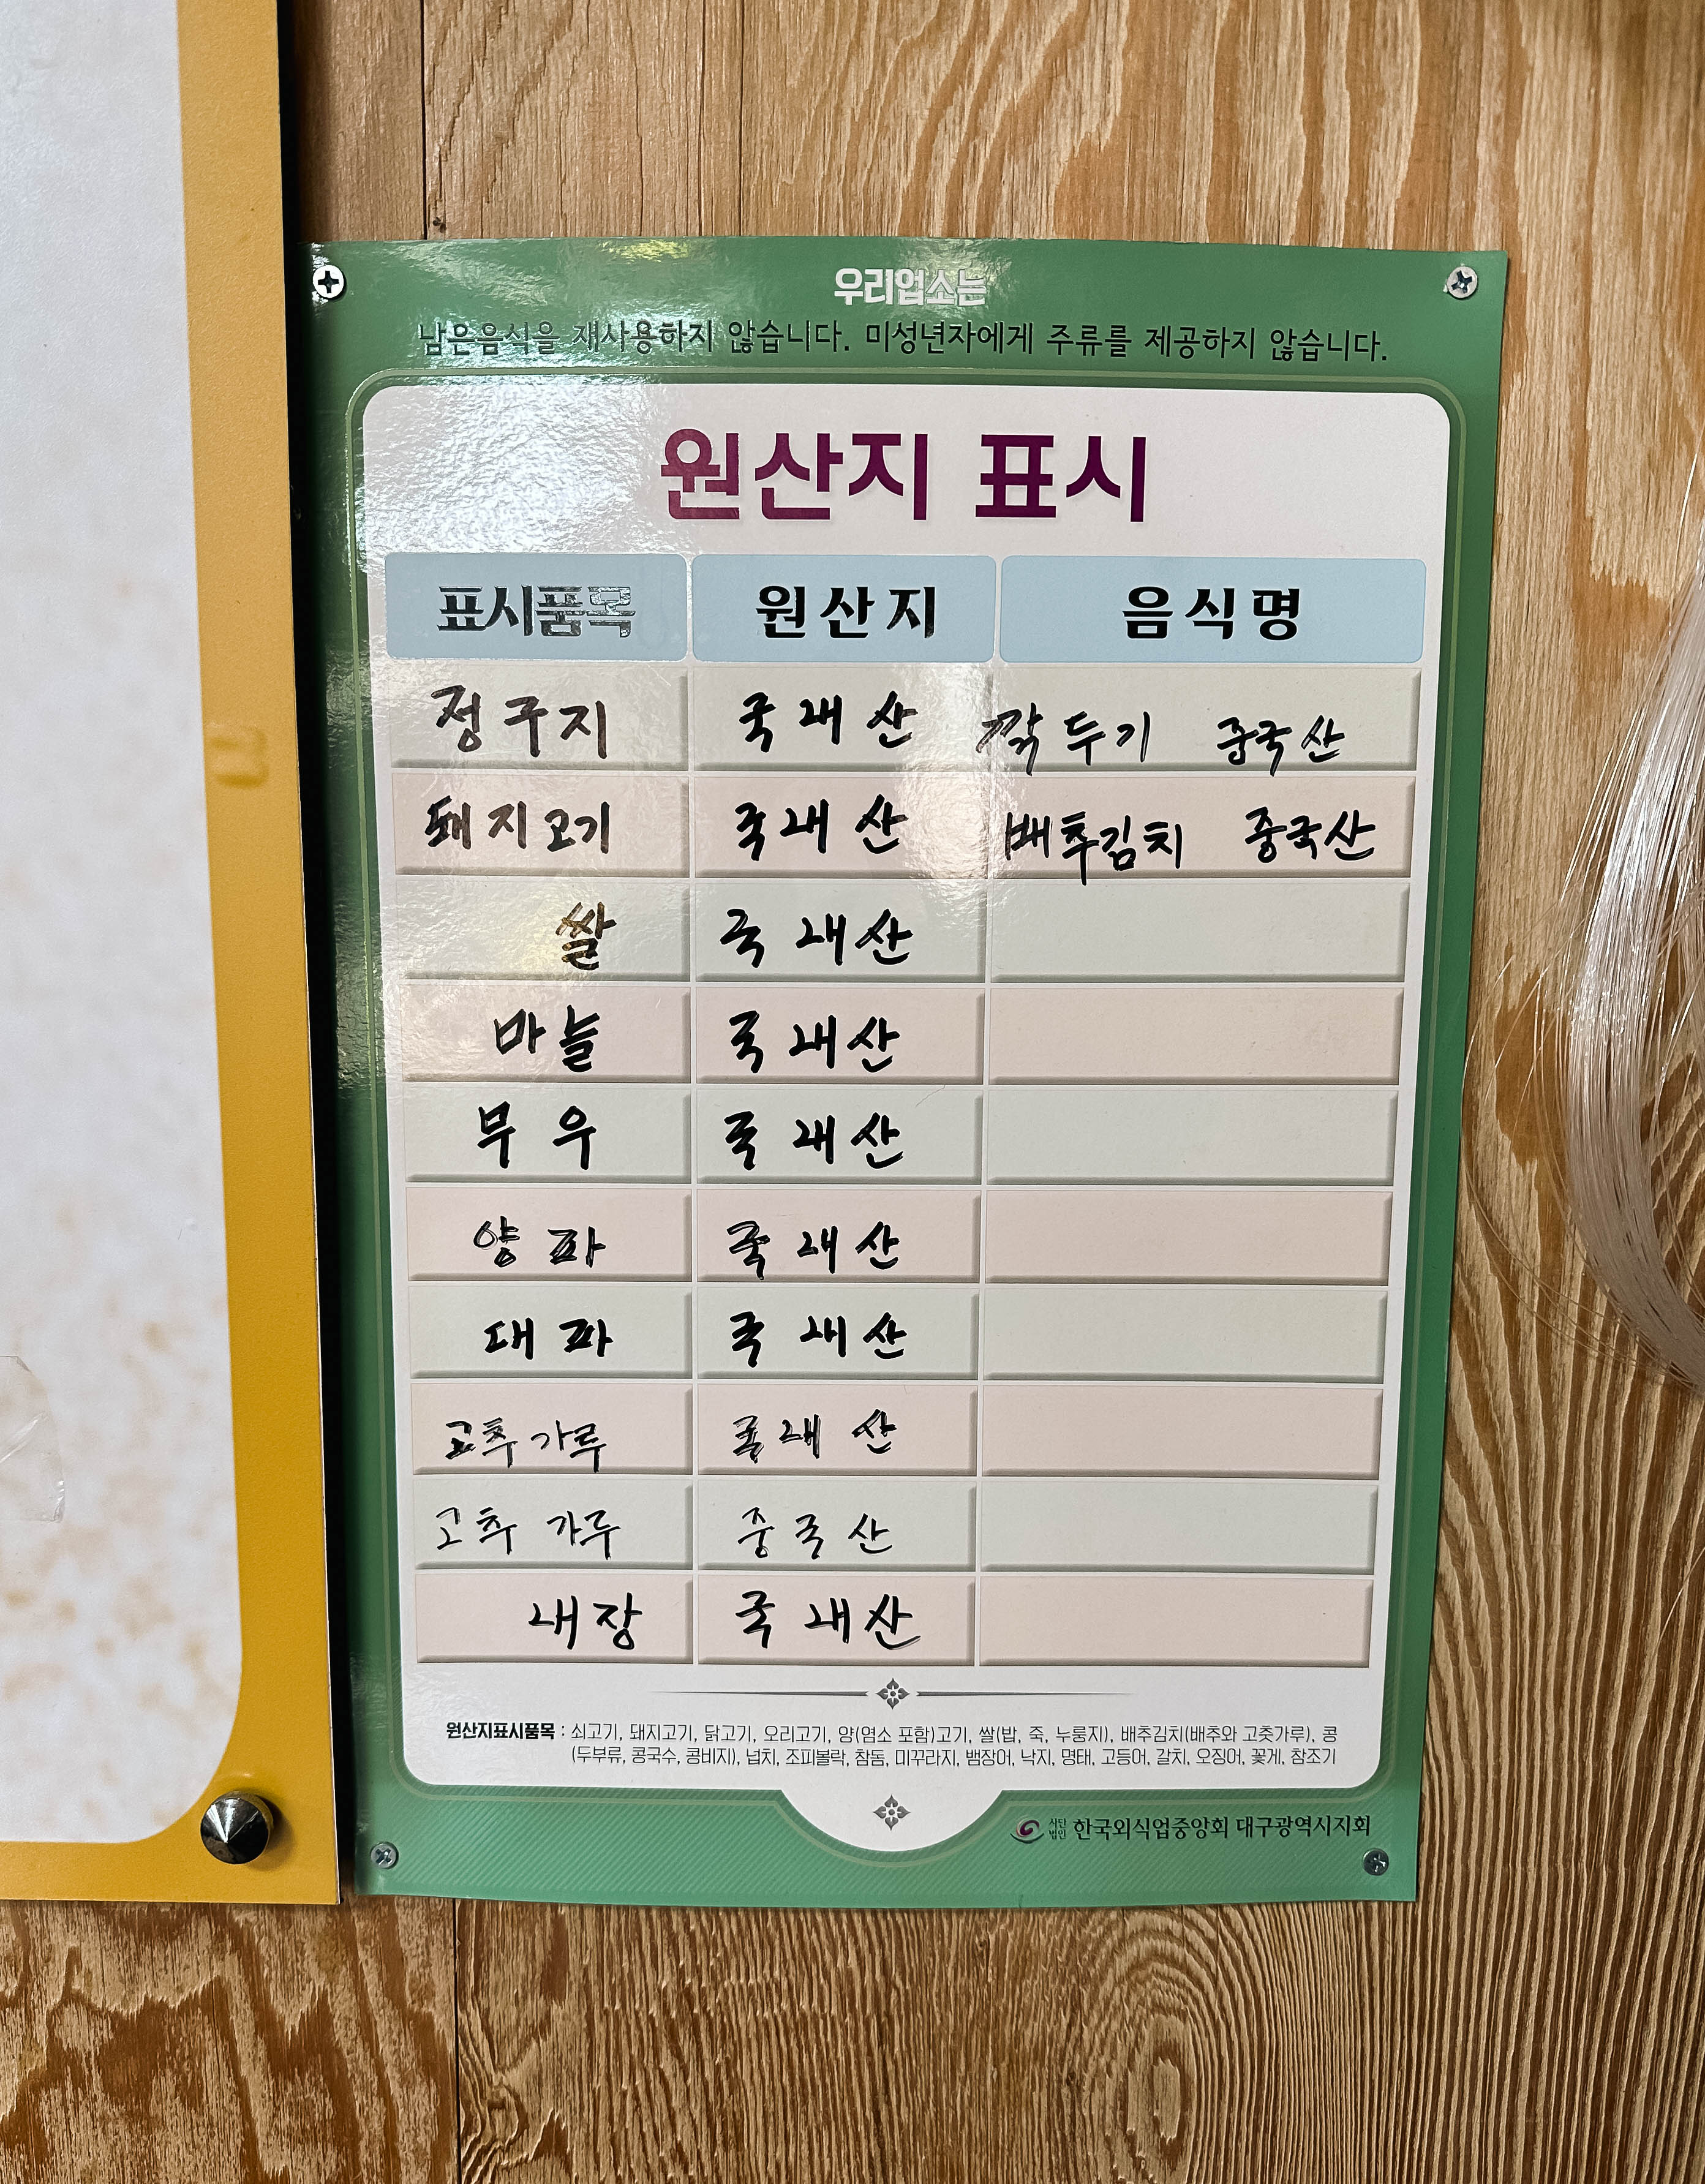 우리업소는
남은음식을 재사용하지 않습니다. 미성년자에게 주류를 제공하지 않습니다.
원산지 표시
표시품목 원산지 음식명
정구지 국내산 깍두기 중국산
돼지고기 국내산 배추김치 중국산
쌀 국내산
마늘 국내산
무우 국내산
양파 국내산
대파 국내산
고추가루 국내산
고추가루 중국산
내장 국내산
원산지표시품목 : 쇠고기, 돼지고기, 닭고기, 오리고기, 양(염소 포함)고기, 쌀(밥, 죽, 누룽지), 배추김치(배추와 고춧가루), 콩
(두부류, 콩국수, 콩비지), 넙치, 조피볼락, 참돔, 미꾸라지, 뱀장어, 낙지, 명태, 고등어, 갈치, 오징어, 꽃게, 참조기
사단법인 한국외식업중앙회 대구광역시지회